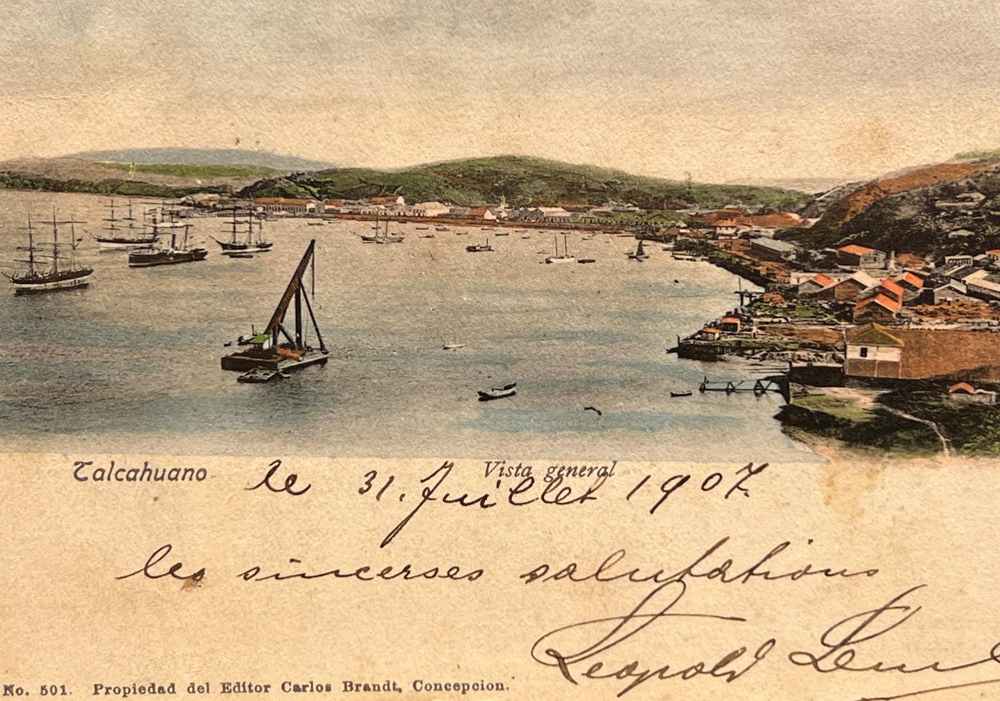 Talcahuano Vista general
le 31. Juillet 1907.
les sincerses salutations
Leopold
No. 501. Propiedad del Editor Carlos Brandt, Concepcion.